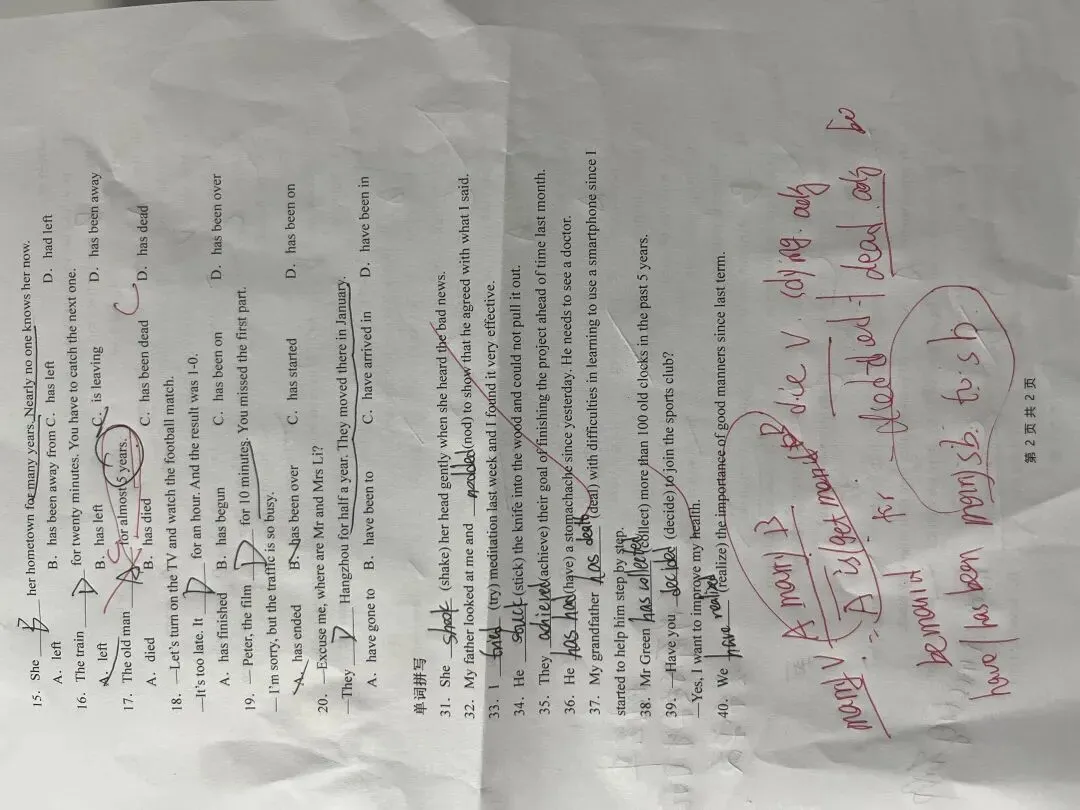 15. She B her hometown for many years. Nearly no one knows her now.
A. left B. has been away from C. has left D. had left
16. The train D for twenty minutes. You have to catch the next one.
A. left B. has left C. is leaving D. has been away
17. The old man for almost 5 years. C
A. died B. has died C. has been dead D. has dead
18. —Let's turn on the TV and watch the football match.
—It's too late. It D for an hour. And the result was 1-0.
A. has finished B. has begun C. has been on D. has been over
19. — Peter, the film D for 10 minutes. You missed the first part.
— I'm sorry, but the traffic is so busy.
A. has ended B. has been over C. has started D. has been on
20. —Excuse me, where are Mr and Mrs Li?
—They D Hangzhou for half a year. They moved there in January.
A. have gone to B. have been to C. have arrived in D. have been in
单词拼写
31. She shook (shake) her head gently when she heard the bad news.
32. My father looked at me and (nod) to show that he agreed with what I said.
33. I tried (try) meditation last week and I found it very effective.
34. He stuck (stick) the knife into the wood and could not pull it out.
35. They achieved (achieve) their goal of finishing the project ahead of time last month.
36. He has had (have) a stomachache since yesterday. He needs to see a doctor.
37. My grandfather has (deal) with difficulties in learning to use a smartphone since I
started to help him step by step.
38. Mr Green has collected (collect) more than 100 old clocks in the past 5 years.
39. —Have you decided (decide) to join the sports club?
—Yes, I want to improve my health.
40. We have realized (realize) the importance of good manners since last term.
marry V A marry B die V. dying. adj
= A is/get married to B died
for died dead. adj
be married marry sb. to sb.
have/has been
第 2 页 共 2 页